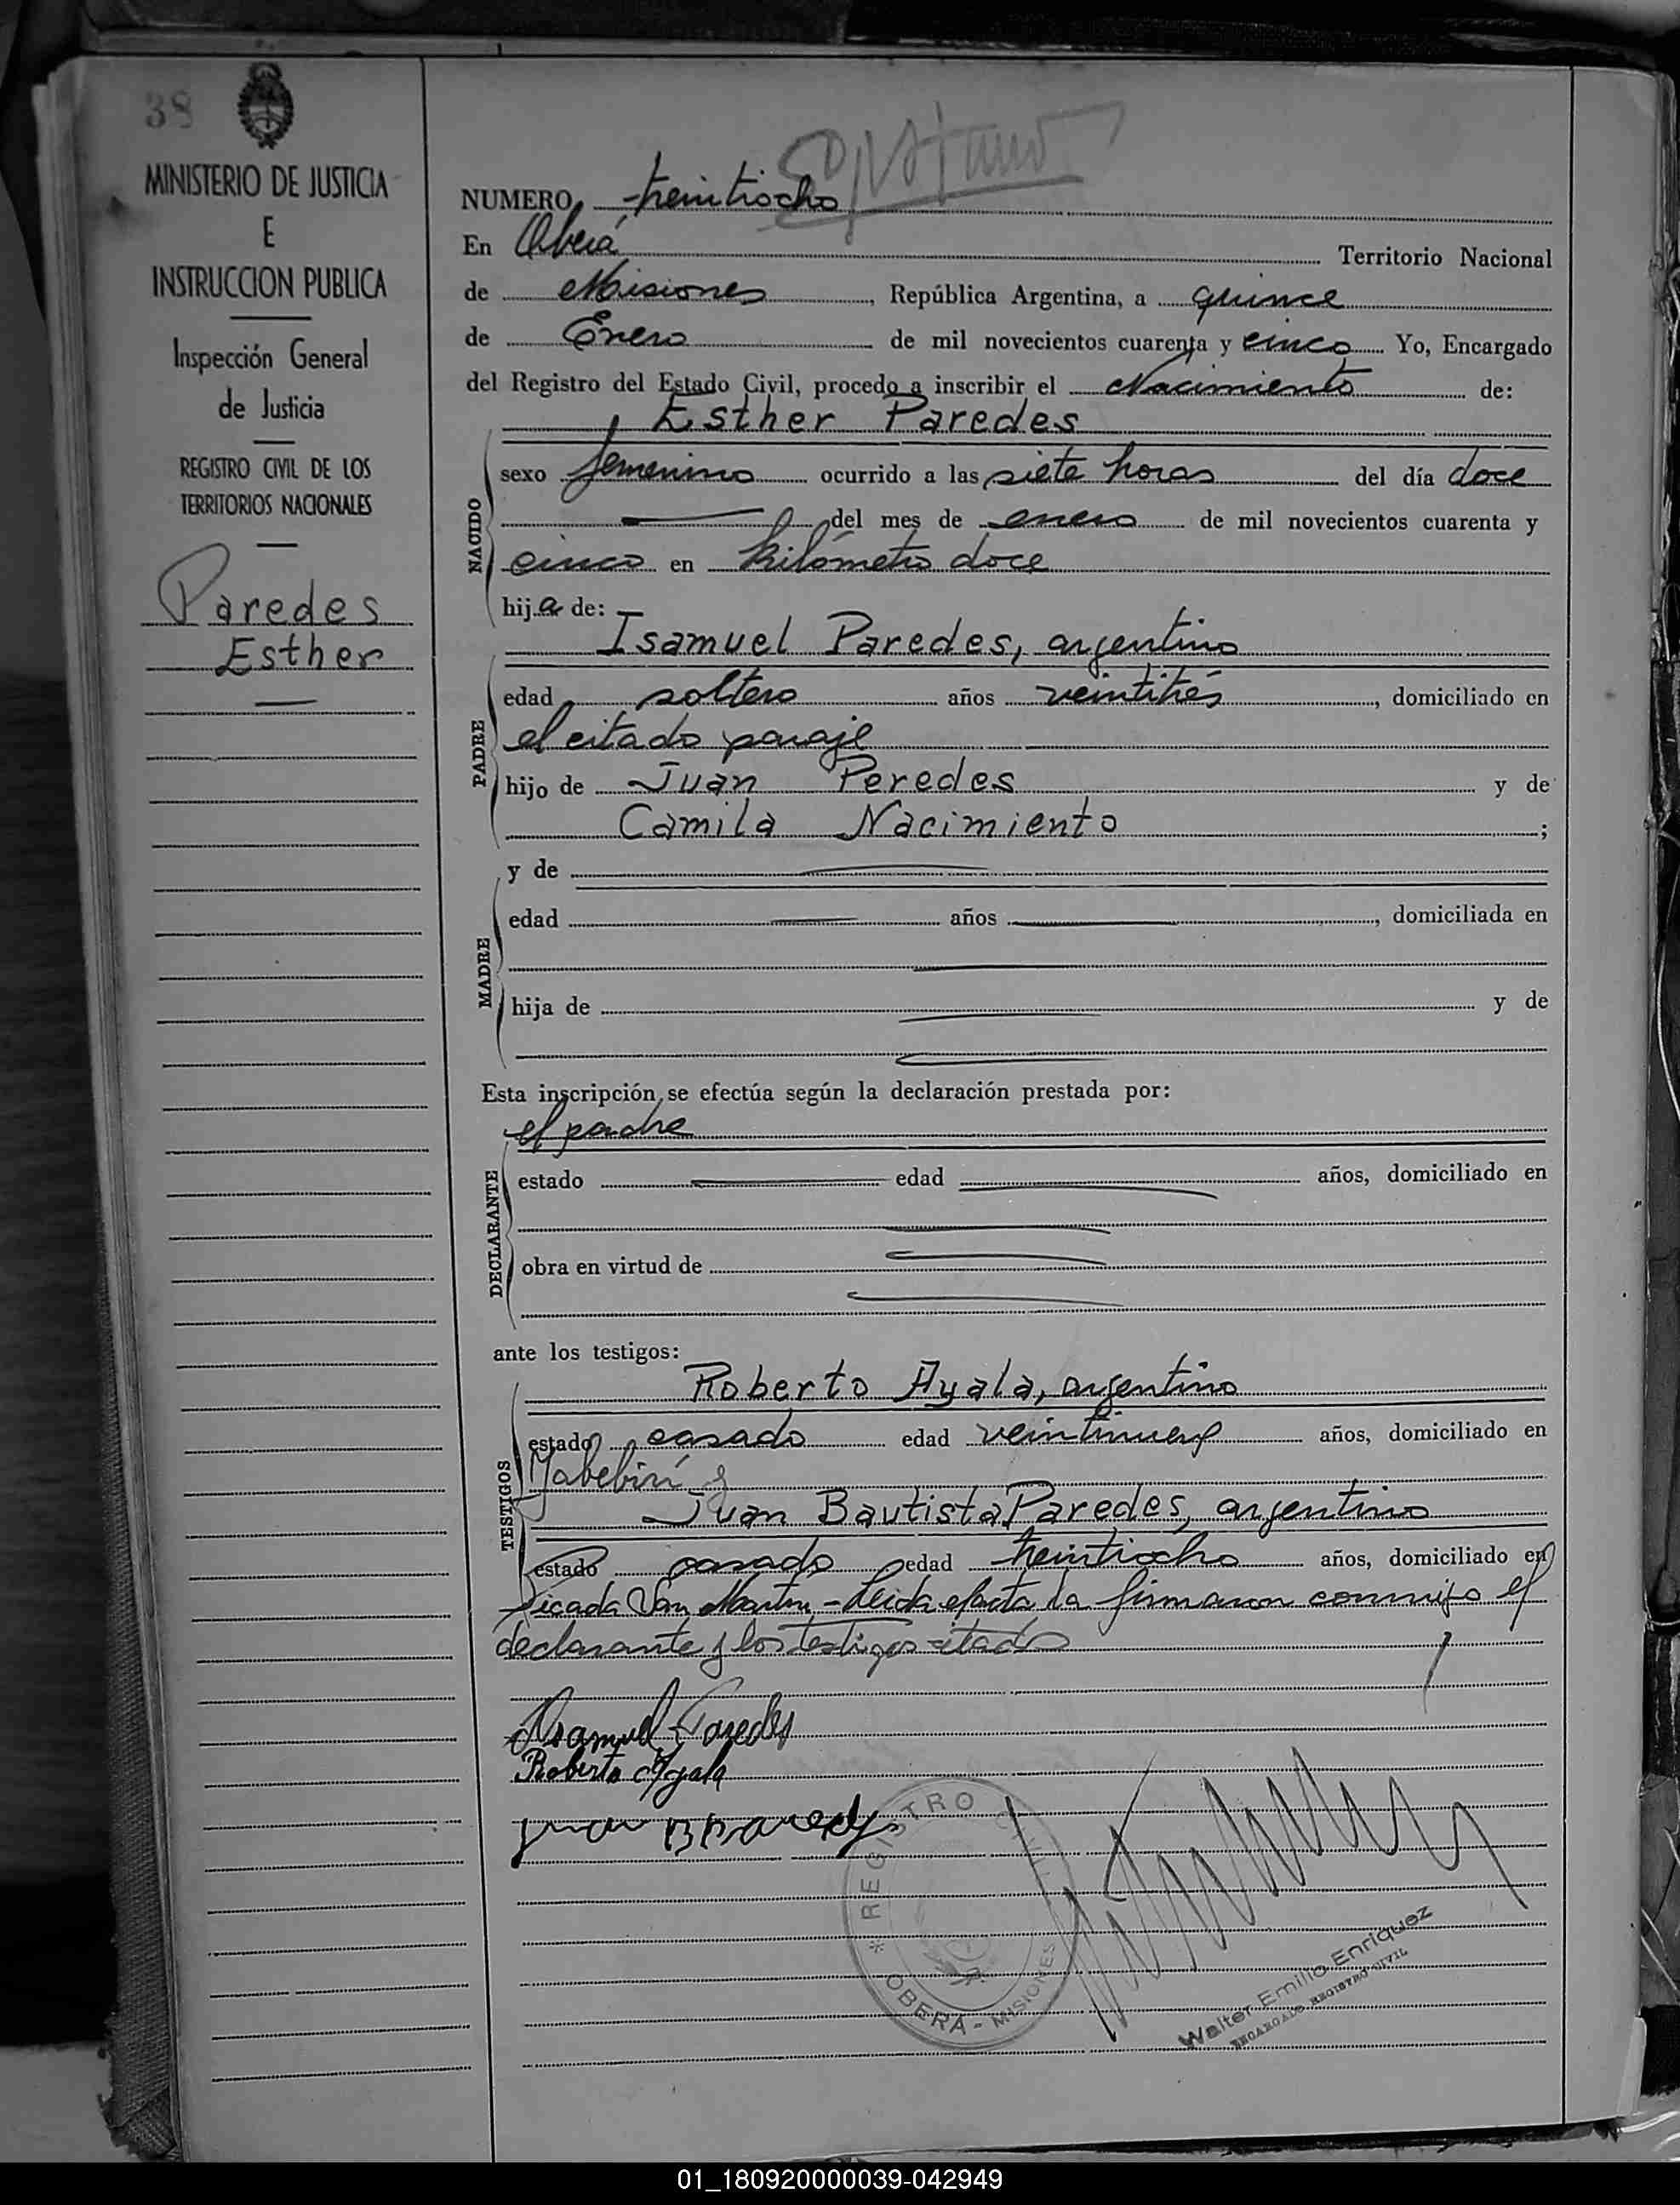 38
MINISTERIO DE JUSTICIA
E
INSTRUCCION PUBLICA
Inspección General
de Justicia
REGISTRO CIVIL DE LOS
TERRITORIOS NACIONALES
Paredes
Esther
NUMERO treintiocho
En Oberá Territorio Nacional
de Misiones, República Argentina, a quince
de Enero de mil novecientos cuarenta y cinco Yo, Encargado
del Registro del Estado Civil, procedo a inscribir el Nacimiento de:
Esther Paredes
NACIDO
sexo femenino ocurrido a las siete horas del día doce
del mes de enero de mil novecientos cuarenta y
cinco en kilómetro doce
hija de:
Isamuel Paredes, argentino
PADRE
edad soltero años veintitrés, domiciliado en
el citado paraje
hijo de Juan Peredes y de
Camila Nacimiento ;
y de
MADRE
edad años , domiciliada en
hija de y de
Esta inscripción se efectúa según la declaración prestada por:
el padre
DECLARANTE
estado edad años, domiciliado en
obra en virtud de
ante los testigos:
Roberto Ayala, argentino
TESTIGOS
estado casado edad veintinueve años, domiciliado en
Yabebirí y
Juan Bautista Paredes, argentino
estado casado edad treintiocho años, domiciliado en
Picada San Martín,- Leida el acta la firmaron conmigo el
declarante y los testigos citados
Isamuel Paredes
Roberto Ayala
Juan B Paredes
REGISTRO CIVIL
OBERÁ - MISIONES
Walter Emilio Enriquez
ENCARGADO REGISTRO CIVIL
01_180920000039-042949